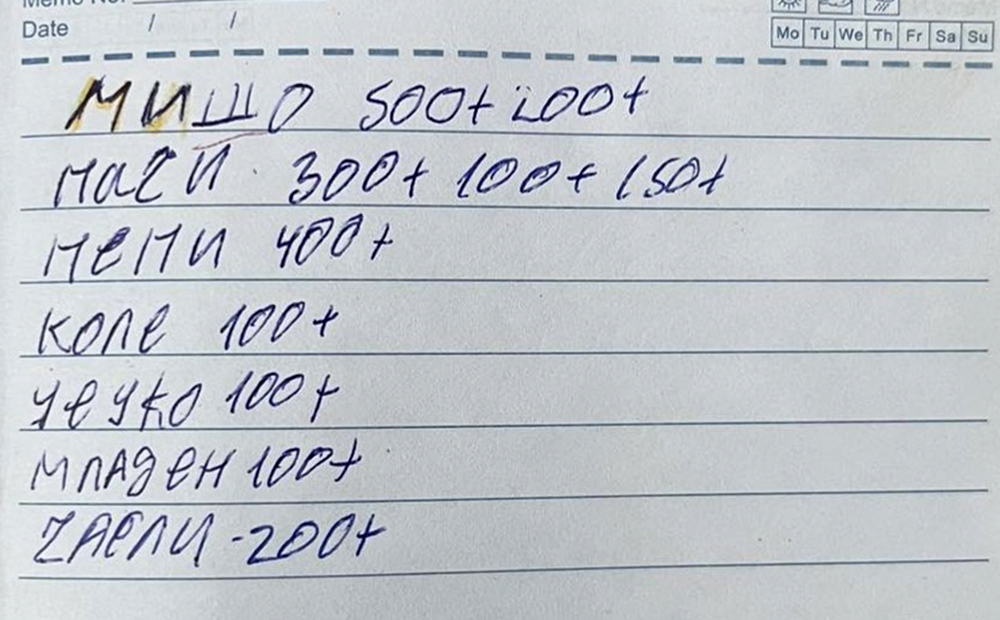 Date / /
Mo Tu We Th Fr Sa Su
МИШО 500+200+
МАГИ 300+100+150+
МЕМИ 400+
КОЛЕ 100+
УЕУКО 100+
МЛАДЕН 100+
-200+